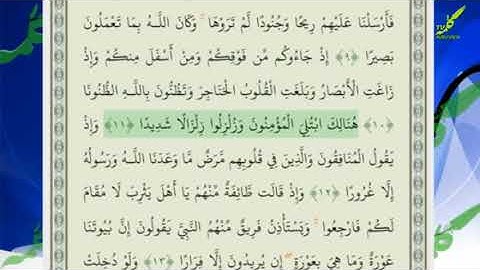 فَأَرْسَلْنَا عَلَيْهِمْ رِيحًا وَجُنُودًا لَّمْ تَرَوْهَا ۚ وَكَانَ اللَّـهُ بِمَا تَعْمَلُونَ
بَصِيرًا ﴿٩﴾ إِذْ جَاءُوكُم مِّن فَوْقِكُمْ وَمِنْ أَسْفَلَ مِنكُمْ وَإِذْ
زَاغَتِ الْأَبْصَارُ وَبَلَغَتِ الْقُلُوبُ الْحَنَاجِرَ وَتَظُنُّونَ بِاللَّـهِ الظُّنُونَا
﴿١٠﴾ هُنَالِكَ ابْتُلِيَ الْمُؤْمِنُونَ وَزُلْزِلُوا زِلْزَالًا شَدِيدًا ﴿١١﴾ وَإِذْ
يَقُولُ الْمُنَافِقُونَ وَالَّذِينَ فِي قُلُوبِهِم مَّرَضٌ مَّا وَعَدَنَا اللَّـهُ وَرَسُولُهُ
إِلَّا غُرُورًا ﴿١٢﴾ وَإِذْ قَالَت طَّائِفَةٌ مِّنْهُمْ يَا أَهْلَ يَثْرِبَ لَا مُقَامَ
لَكُمْ فَارْجِعُوا ۚ وَيَسْتَأْذِنُ فَرِيقٌ مِّنْهُمُ النَّبِيَّ يَقُولُونَ إِنَّ بُيُوتَنَا
عَوْرَةٌ وَمَا هِيَ بِعَوْرَةٍ ۖ إِن يُرِيدُونَ إِلَّا فِرَارًا ﴿١٣﴾ وَلَوْ دُخِلَتْ